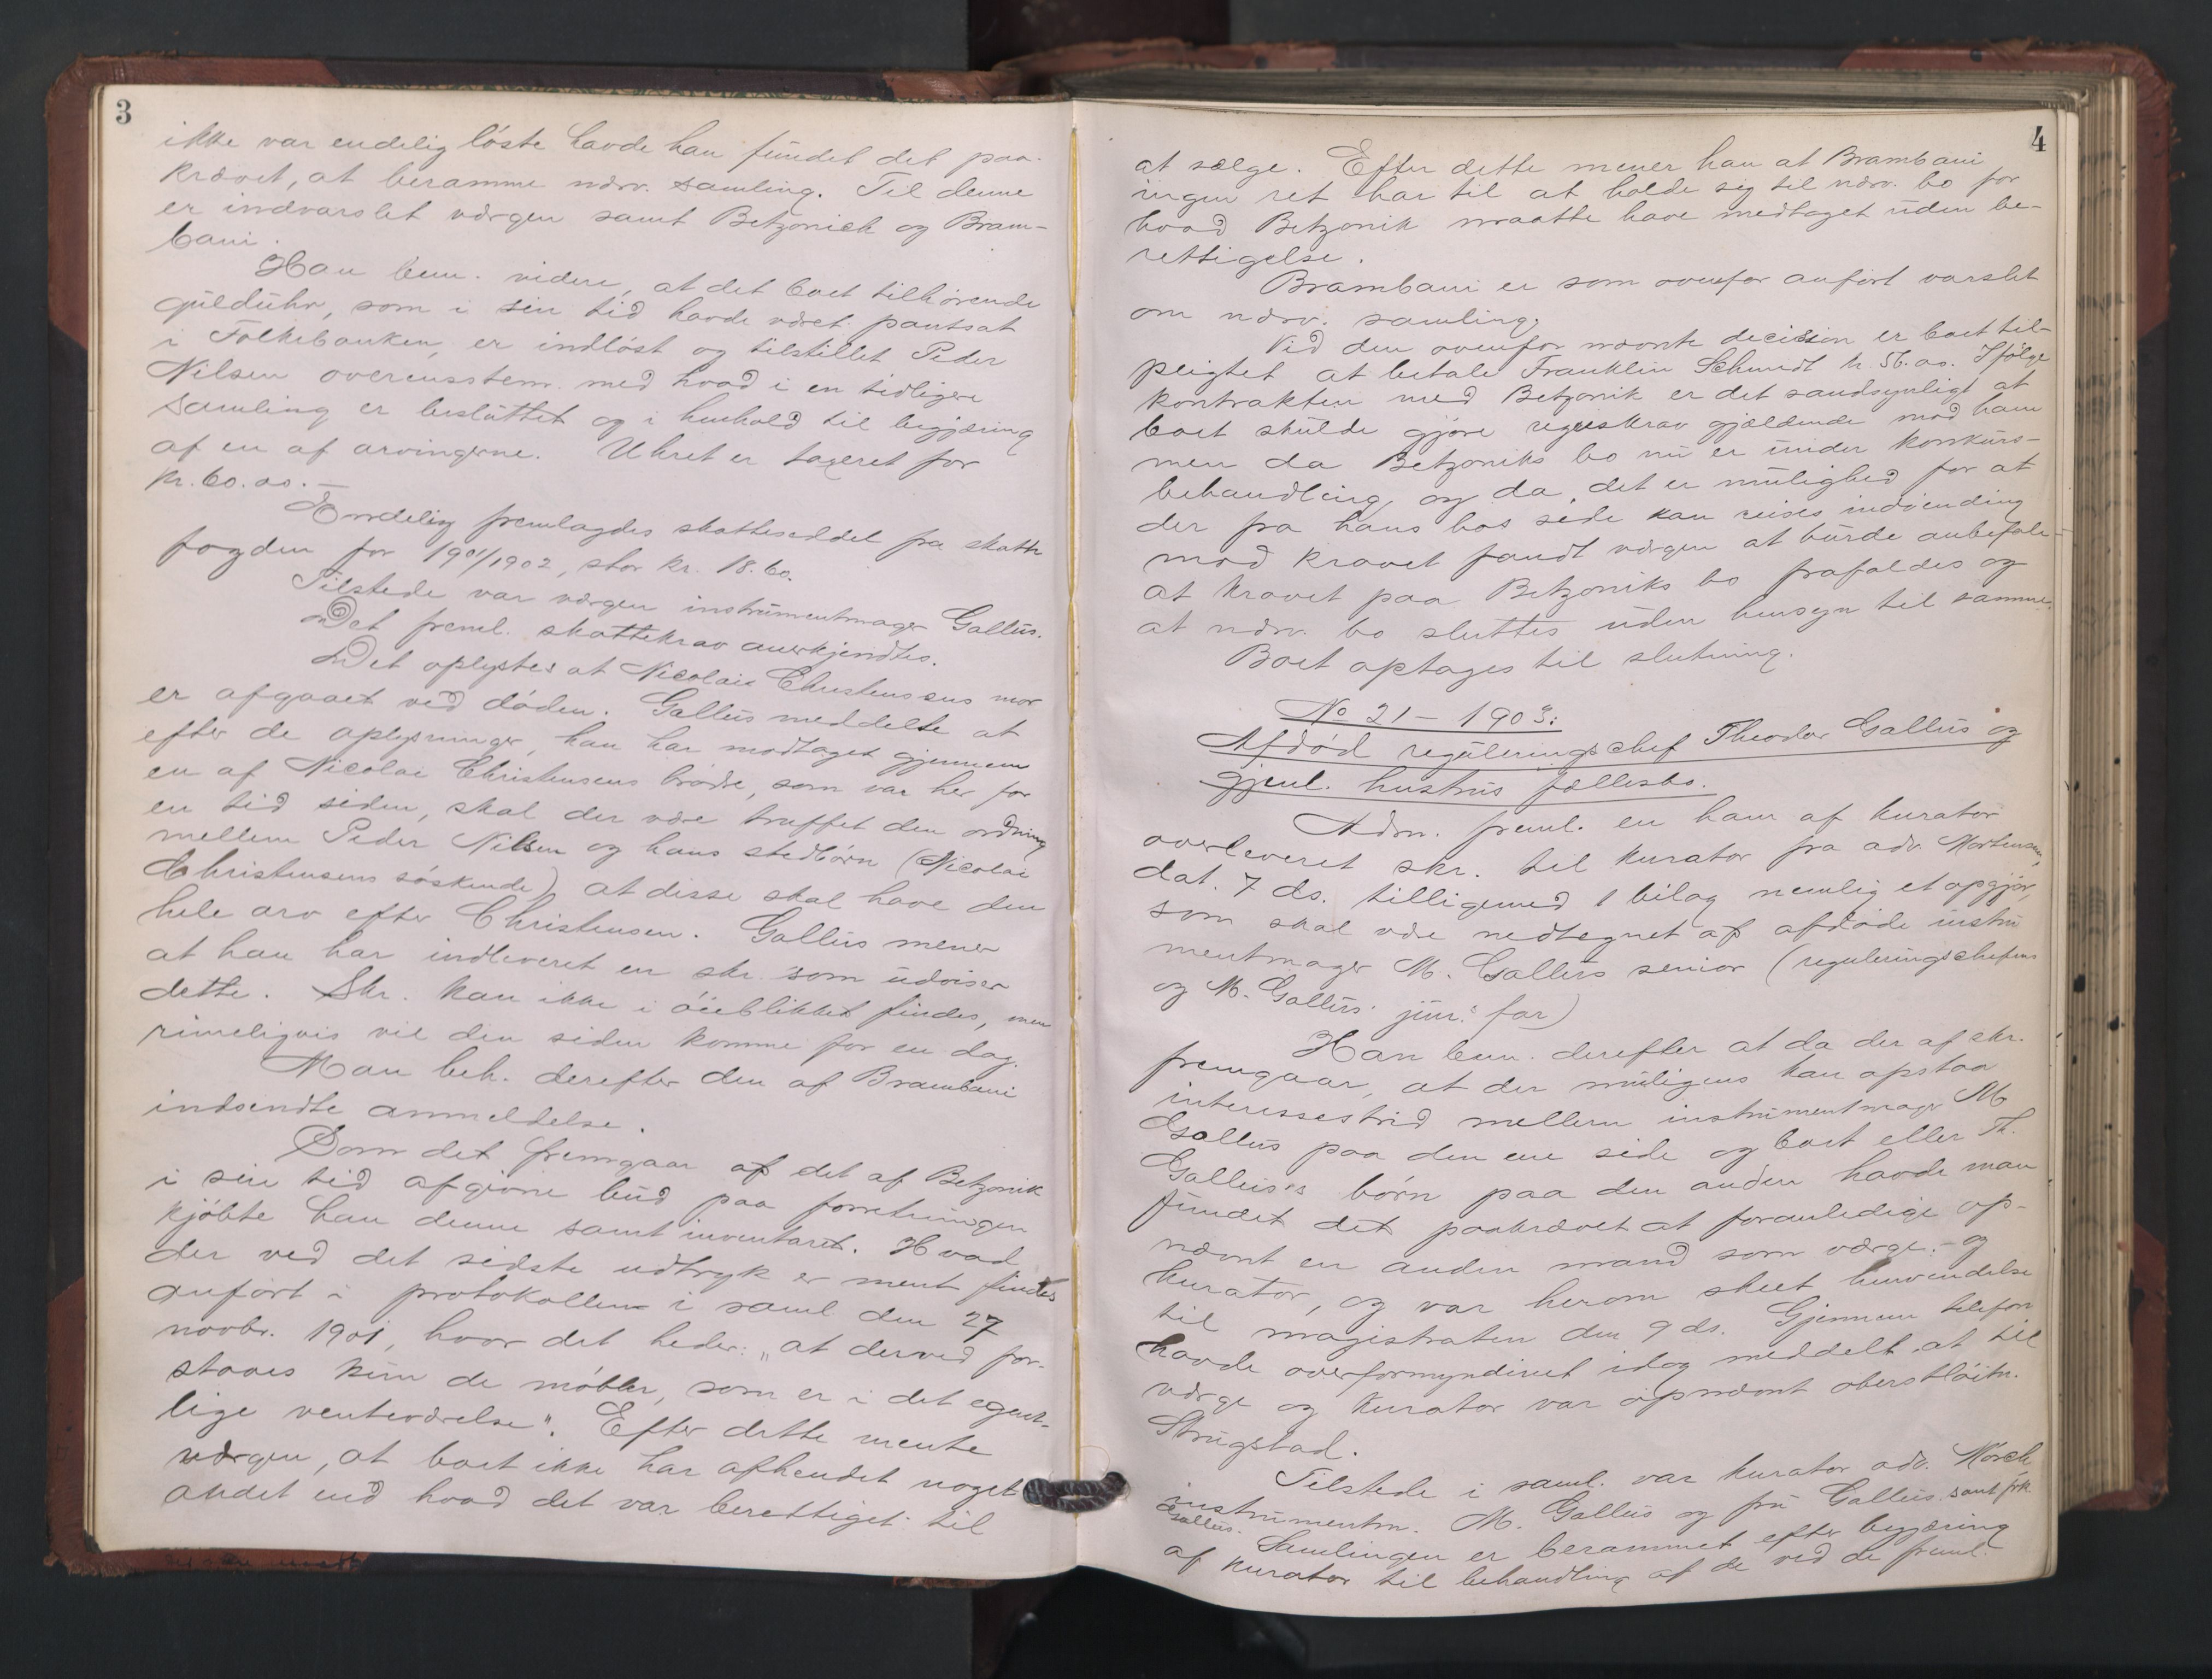 3
ikke var endelig løste havde han fundet det paa-
krævet, at beramme nærv. samling. Til denne
er indvarslet værgen samt Betzonich og Bram-
bani.
Han bem. videre, at det boet tilhørende
guldühr, som i sin tid havde været pantsat
i Folkebanken, er indløst og tilstillet Peder
Nilsen overensstem. med hvad i en tidligere
samling er besluttet og i henhold til begjæring
af en af arvingerne. Uhret er taxeret for
kr. 60.00.—
Endelig fremlagdes skatteseddel fra skatte
fogden for 1901/1902, stor kr. 18.60.
Tilstede var værgen instrumentmager Gallus.
Det freml. skattekrav anerkjendtes.
Det oplystes at Nicolai Christensens mor
er afgaaet ved døden. Gallus meddelte at
efter de oplysninger, han har modtaget gjennem
en af Nicolai Christensens brødre, som var her for
en tid siden, skal der være truffet den ordning
mellem Peder Nilsen og hans stedbørn (Nicolai
Christensens søskende) at disse skal have den
hele arv efter Christensen. Gallus mener
at han har indleveret en skr. som udviser
dette. Skr. kan ikke i øieblikket findes, men
rimeligvis vil den siden komme for en dag.
Man beh. derefter den af Brambani
indsendte anmeldelse.
Som det fremgaar af det af Betzonik
i sin tid afgivne bud paa forretningen
kjøbte han denne samt inventaret. Hvad
der ved det sidste udtryk er ment findes
anført i protokollen i saml. den 27
novbr. 1901, hvor det heder: "at derved for-
staaes kun de møbler, som er i det egent-
lige venteværelse". Efter dette mente
værgen, at boet ikke har afhendet noget
andet end hvad det var berettiget til
4
at sælge. Efter dette mener han at Brambani
ingen ret har til at holde sig til nærv. bo for
hvad Betzonik maatte have medtaget uden be-
rettigelse.
Brambani er som ovenfor anført varslet
om nærv. samling.
Ved den ovenfor nævnte decision er boet til-
pligtet at betale Franklin Schmidt kr. 56.00. Ifølge
kontrakten med Betzonik er det sandsynligt at
boet skulde gjøre regreskrav gjældende mod ham
men da Betzoniks bo nu er under konkurs-
behandling og da det er mulighed for at
der fra hans bos side kan reises indvending
mod kravet fandt værgen at burde anbefale
at kravet paa Betzoniks bo frafaldes og
at nærv. bo sluttes uden hensyn til samme.
Boet optages til slutning.
No 21 – 1903:
Afdød reguleringschef Theodor Gallus og
gjenl. hustrus fællesbo.
Adm. freml. en ham af kurator
overleveret skr. til kurator fra adv. Mortensen,
dat. 7 ds. tilligemed 1 bilag nemlig et opgjør,
som skal være nedtegnet af afdøde instru
mentmager M. Gallus senior (reguleringschefens
og M. Gallus' jun.' far)
Han bem. derefter at da der af skr.
fremgaar, at der muligens kan opstaa
interessestrid mellem instrumentmager M
Gallus paa den ene side og boet eller Th.
Gallus's børn paa den anden havde man
fundet det paakrævet at foranledige op-
nævnt en anden mand som værge og
kurator, og var herom skeet henvendelse
til magistraten den 9 ds. Gjennem telefon
havde overformynderiet idag meddelt at til
værge og kurator var opnævnt oberstløitn.
Strugstad.
Tilstede i saml. var kurator adv. Mørch
instrumentm. M. Gallus og fru Gallus samt frk.
Gallus.
Samlingen er berammet efter begjæring
af kurator til behandling af de ved de freml.